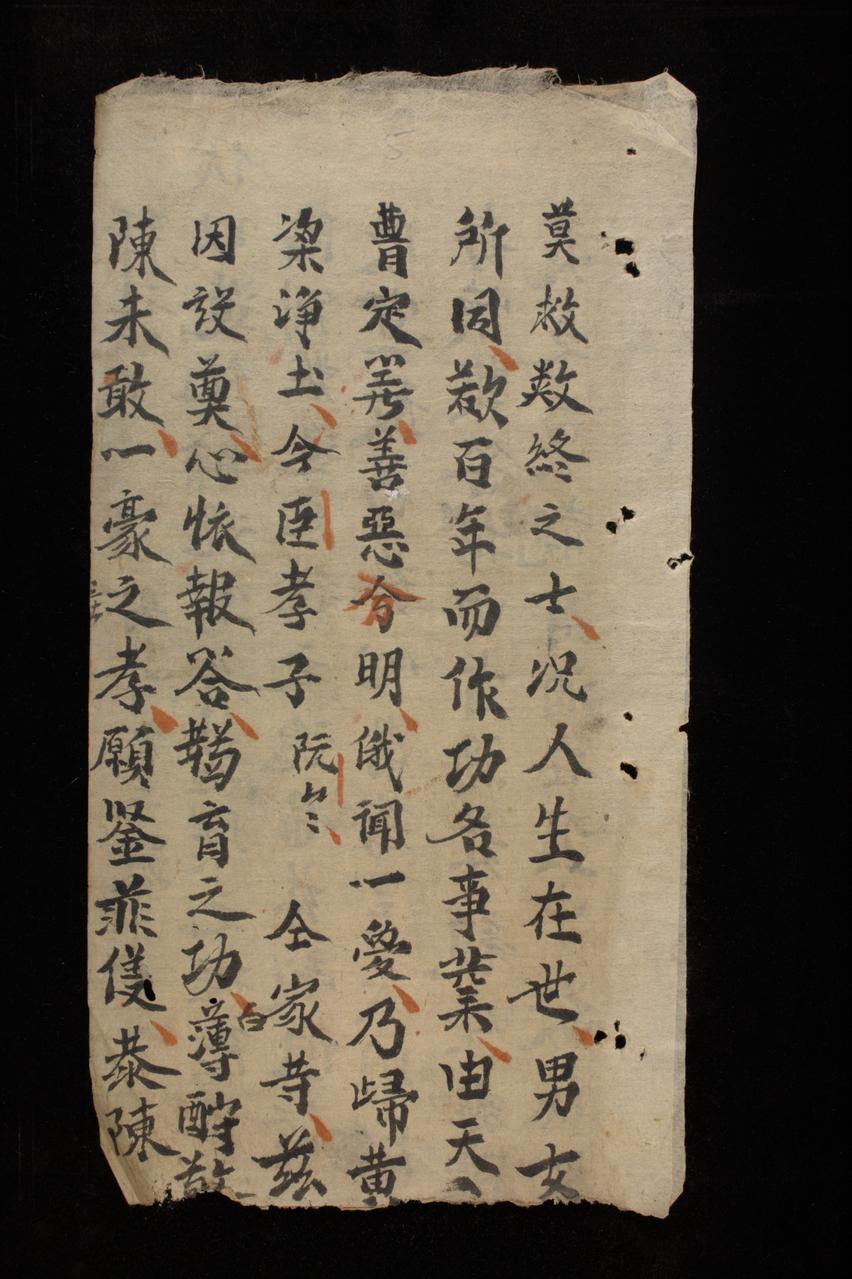 莫救数終之士况人生在世男女
所同歎百年而作功各事業由天
曹定筭善惡分明俄聞一愛乃歸黄
梁浄土今臣孝子阮仝家等茲
因設奠心恢報答鞠育之功薄酧
陳未敢一豪之孝願鉴菲僅恭陳
白